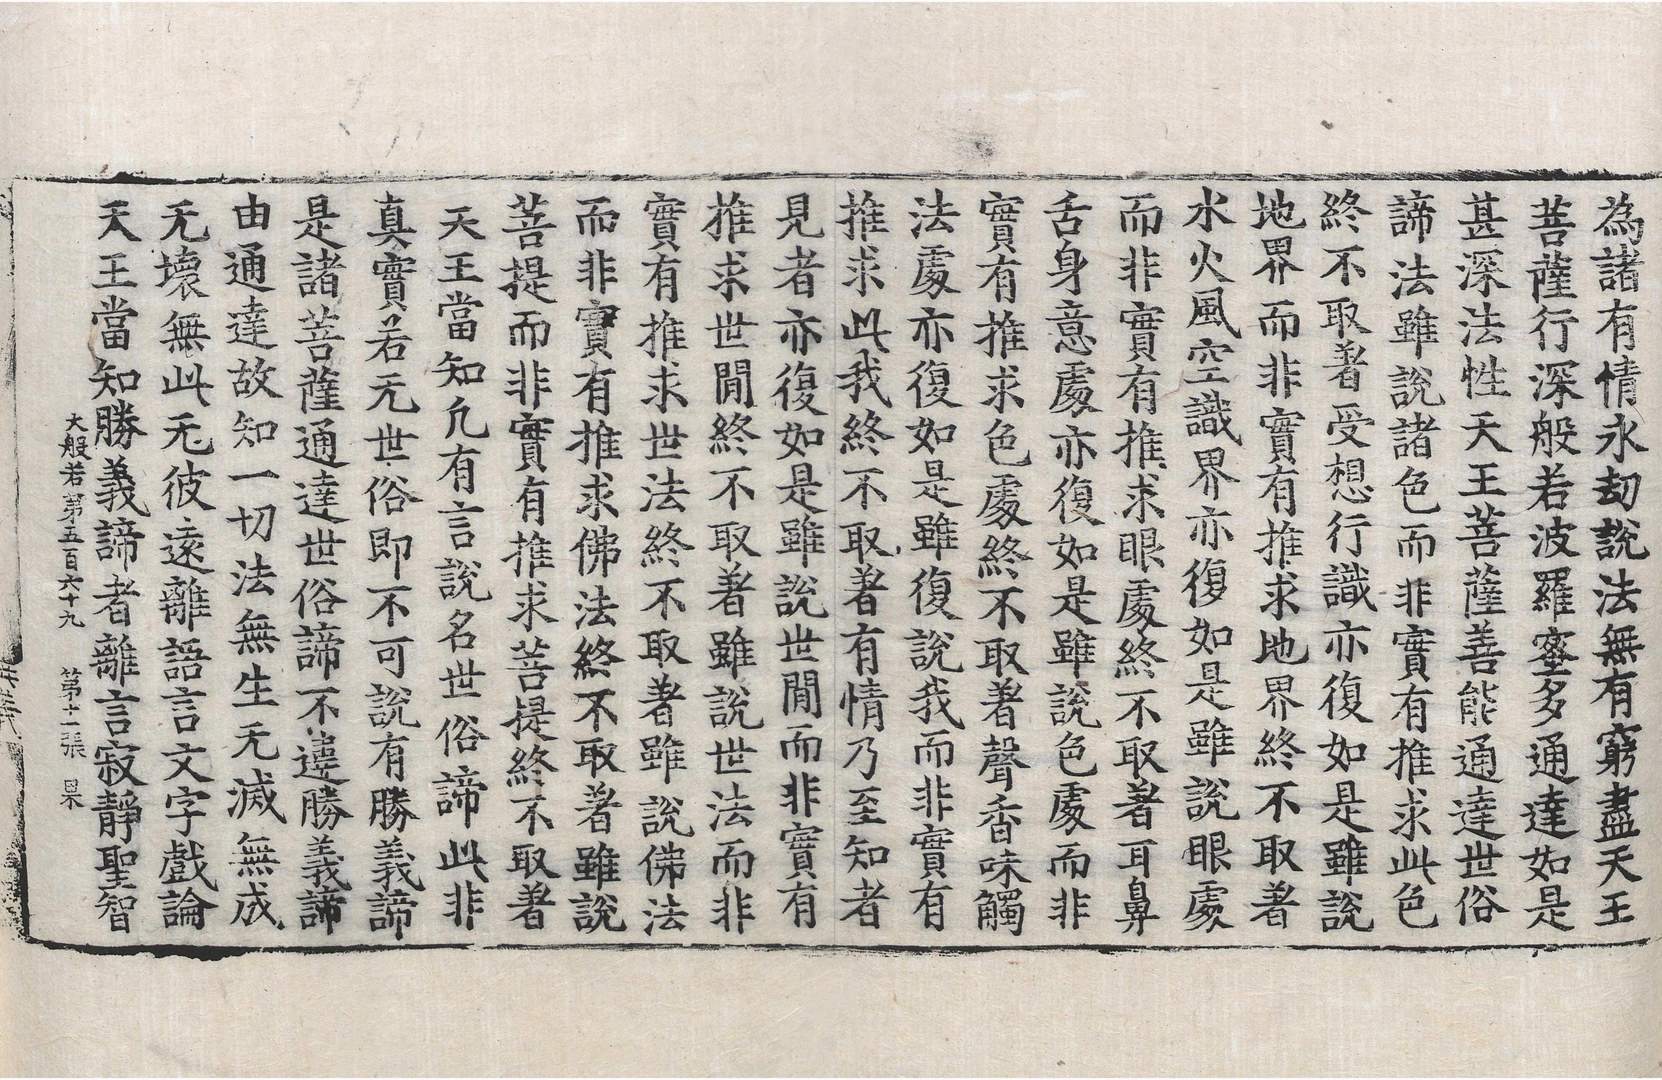 為諸有情永劫說法無有窮盡天王
菩薩行深般若波羅蜜多通達如是
甚深法性天王菩薩善能通達世俗
諦法雖說諸色而非實有推求此色
終不取著受想行識亦復如是雖說
地界而非實有推求地界終不取著
水火風空識界亦復如是雖說眼處
而非實有推求眼處終不取著耳鼻
舌身意處亦復如是雖說色處而非
實有推求色處終不取著聲香味觸
法處亦復如是雖復說我而非實有
推求此我終不取著有情乃至知者
見者亦復如是雖說世間而非實有
推求世間終不取著雖說世法而非
實有推求世法終不取著雖說佛法
而非實有推求佛法終不取著雖說
菩提而非實有推求菩提終不取著
天王當知凡有言說名世俗諦此非
真實若无世俗即不可說有勝義諦
是諸菩薩通達世俗諦不違勝義諦
由通達故知一切法無生无滅無成
无壞無此无彼遠離語言文字戲論
天王當知勝義諦者離言寂靜聖智
大般若第五百六十九 第十二張 杲